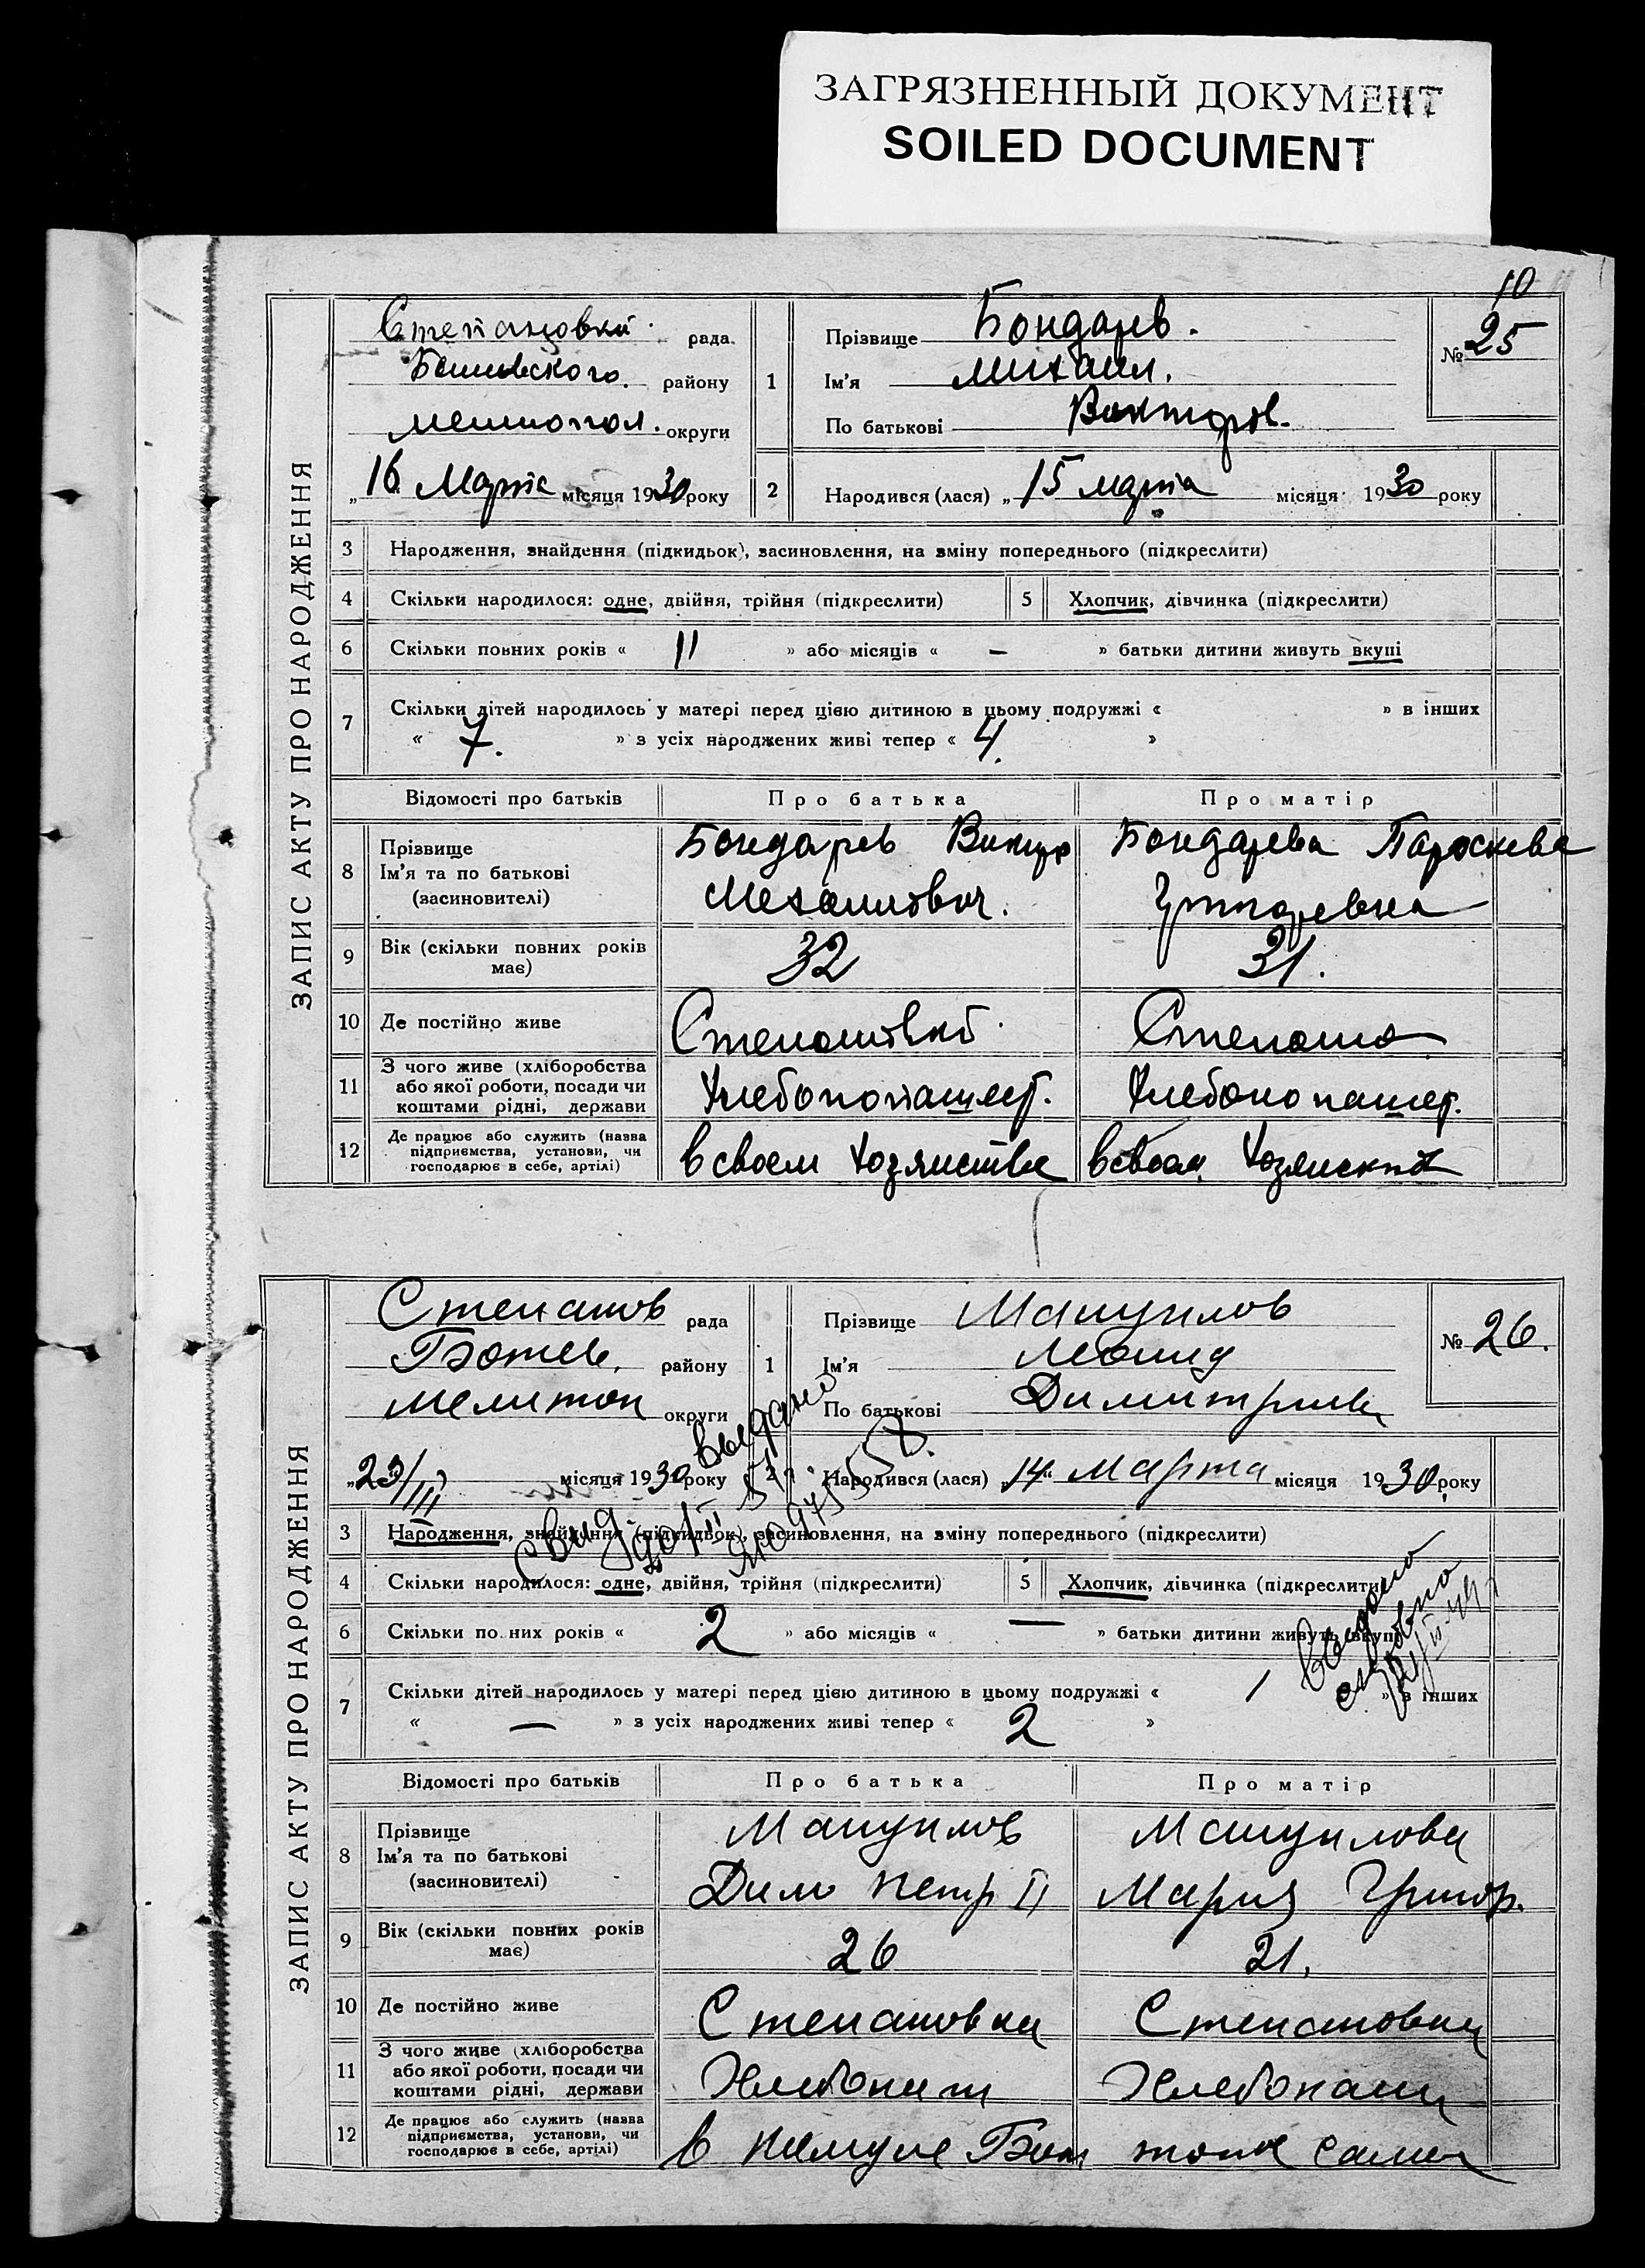 ЗАГРЯЗНЕННЫЙ ДОКУМЕНТ
SOILED DOCUMENT
10
ЗАПИС АКТУ ПРО НАРОДЖЕННЯ
Степановка рада
району
округи
"16 Марта місяця 1930 року
1
Прізвище Бондарев.
Ім'я Михаил.
По батькові Викторов.
№ 25
2 Народився (лася) "15 марта місяця 1930 року
3 Народження, знайдення (підкидьок), засиновлення, на зміну попереднього (підкреслити)
4 Скільки народилося: одне, двійня, трійня (підкреслити) 5 Хлопчик, дівчинка (підкреслити)
6 Скільки повних років « 11 » або місяців « — » батьки дитини живуть вкупі
7 Скільки дітей народилось у матері перед цією дитиною в цьому подружжі « » в інших
« 7. » з усіх народжених живі тепер « 4. »
Відомості про батьків Про батька Про матір
8 Прізвище Ім'я та по батькові (засиновителі)
Бондарев Виктор Бондарева Параскева
9 Вік (скільки повних років має) 32 31.
10 Де постійно живе
11 З чого живе (хліборобства або якої роботи, посади чи коштами рідні, держави
12 Де працює або служить (назва підприємства, установи, чи господарює в себе, артілі) в своем хозяистве в своем
ЗАПИС АКТУ ПРО НАРОДЖЕННЯ
Степанов рада
району
Мелитоп округи
"23/III місяця 1930 року
1
Прізвище Мануилов
Ім'я Леонид
По батькові Димитриев
№ 26.
2 Народився (лася) "14" Марта місяця 1930 року
выдано
Свид.
3 Народження, знайдення (підкидьок), засиновлення, на зміну попереднього (підкреслити)
4 Скільки народилося: одне, двійня, трійня (підкреслити) 5 Хлопчик, дівчинка (підкреслити)
6 Скільки повних років « 2 » або місяців « — » батьки дитини живуть вкупі
Выдано
7 Скільки дітей народилось у матері перед цією дитиною в цьому подружжі « 1 » в інших
« — » з усіх народжених живі тепер « 2 »
Відомості про батьків Про батька Про матір
8 Прізвище Ім'я та по батькові (засиновителі)
Мануилов Мануилова
Мария Григор.
9 Вік (скільки повних років має) 26 21.
10 Де постійно живе Степановка Степановка
11 З чого живе (хліборобства або якої роботи, посади чи коштами рідні, держави
12 Де працює або служить (назва підприємства, установи, чи господарює в себе, артілі)